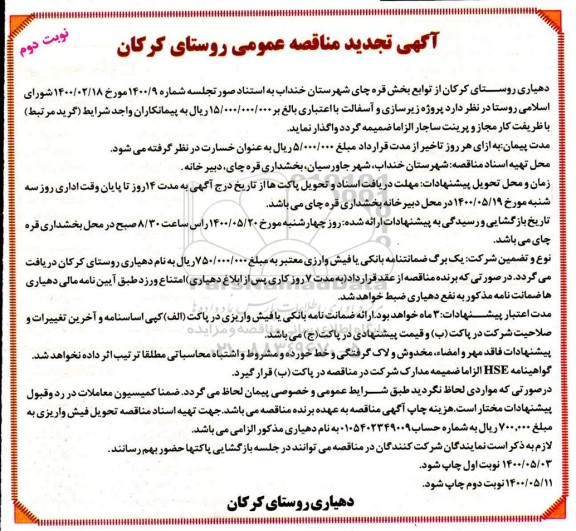 آگهی تجدید مناقصه عمومی روستای کرکان
نوبت دوم
دهیاری روستای کرکان از توابع بخش قره چای شهرستان خنداب به استناد صورتجلسه شماره ۱۴۰۰/۹ مورخ ۱۴۰۰/۰۲/۱۸ شورای
اسلامی روستا در نظر دارد پروژه زیرسازی و آسفالت با اعتباری بالغ بر ۱۵/۰۰۰/۰۰۰/۰۰۰ ریال به پیمانکاران واجد شرایط (گرید مرتبط)
با ظریفت کار مجاز و پرینت ساجار الزاما ضمیمه گردد واگذار نماید.
مدت پیمان: به ازای هر روز تاخیر از مدت قرارداد مبلغ ۵/۰۰۰/۰۰۰ ریال به عنوان خسارت در نظر گرفته می شود.
محل تهیه اسناد مناقصه: شهرستان خنداب، شهر جاورسیان، بخشداری قره چای، دبیر خانه.
زمان و محل تحویل پیشنهادات: مهلت دریافت اسناد و تحویل پاکت ها از تاریخ درج آگهی به مدت ۱۴ روز تا پایان وقت اداری روز سه
شنبه مورخ ۱۴۰۰/۰۵/۱۹ در محل دبیر خانه بخشداری قره چای می باشد.
تاریخ بازگشایی و رسیدگی به پیشنهادات ارائه شده: روز چهارشنبه مورخ ۱۴۰۰/۰۵/۲۰ راس ساعت ۸/۳۰ صبح در محل بخشداری قره
چای می باشد.
نوع و تضمین شرکت: یک برگ ضمانتنامه بانکی یا فیش وارزی معتبر به مبلغ ۷۵۰/۰۰۰/۰۰۰ ریال به نام دهیاری روستای کرکان دریافت
می گردد. در صورتی که برنده مناقصه از عقد قرارداد (به مدت ۷ روز کاری پس از ابلاغ دهیاری) امتناع ورزد طبق آیین نامه مالی دهیاری
ها ضمانت نامه مذکور به نفع دهیاری ضبط خواهد شد.
مدت اعتبار پیشنهادات: ۳ ماه خواهد بود. ارائه ضمانت نامه بانکی یا فیش واریزی در پاکت (الف) کپی اساسنامه و آخرین تغییرات و
صلاحیت شرکت در پاکت (ب) و قیمت پیشنهادی در پاکت (ج) می باشد.
پیشنهادات فاقد مهر و امضاء، مخدوش و لاک گرفتگی و خط خورده و مشروط و اشتباه محاسباتی مطلقا ترتیب اثر داده نخواهد شد.
گواهینامه HSE الزاما ضمیمه مدارک شرکت در مناقصه در پاکت (ب) قرار گیرد.
در صورتی که مواردی لحاظ نگردید طبق شرایط عمومی و خصوصی پیمان لحاظ می گردد. ضمنا کمیسیون معاملات در رد و قبول
پیشنهادات مختار است. هزینه چاپ آگهی مناقصه به عهده برنده مناقصه می باشد. جهت تهیه اسناد مناقصه تحویل فیش واریزی به
مبلغ ۷۰۰,۰۰۰ ریال به شماره حساب ۰۱۰۵۴۰۲۳۴۹۰۰۹ به نام دهیاری مذکور الزامی می باشد.
لازم به ذکر است نمایندگان شرکت کنندگان در مناقصه می توانند در جلسه بازگشایی پاکتها حضور بهم رسانند.
۱۴۰۰/۰۵/۰۳ نوبت اول چاپ شود.
۱۴۰۰/۰۵/۱۱ نوبت دوم چاپ شود.
دهیاری روستای کرکان